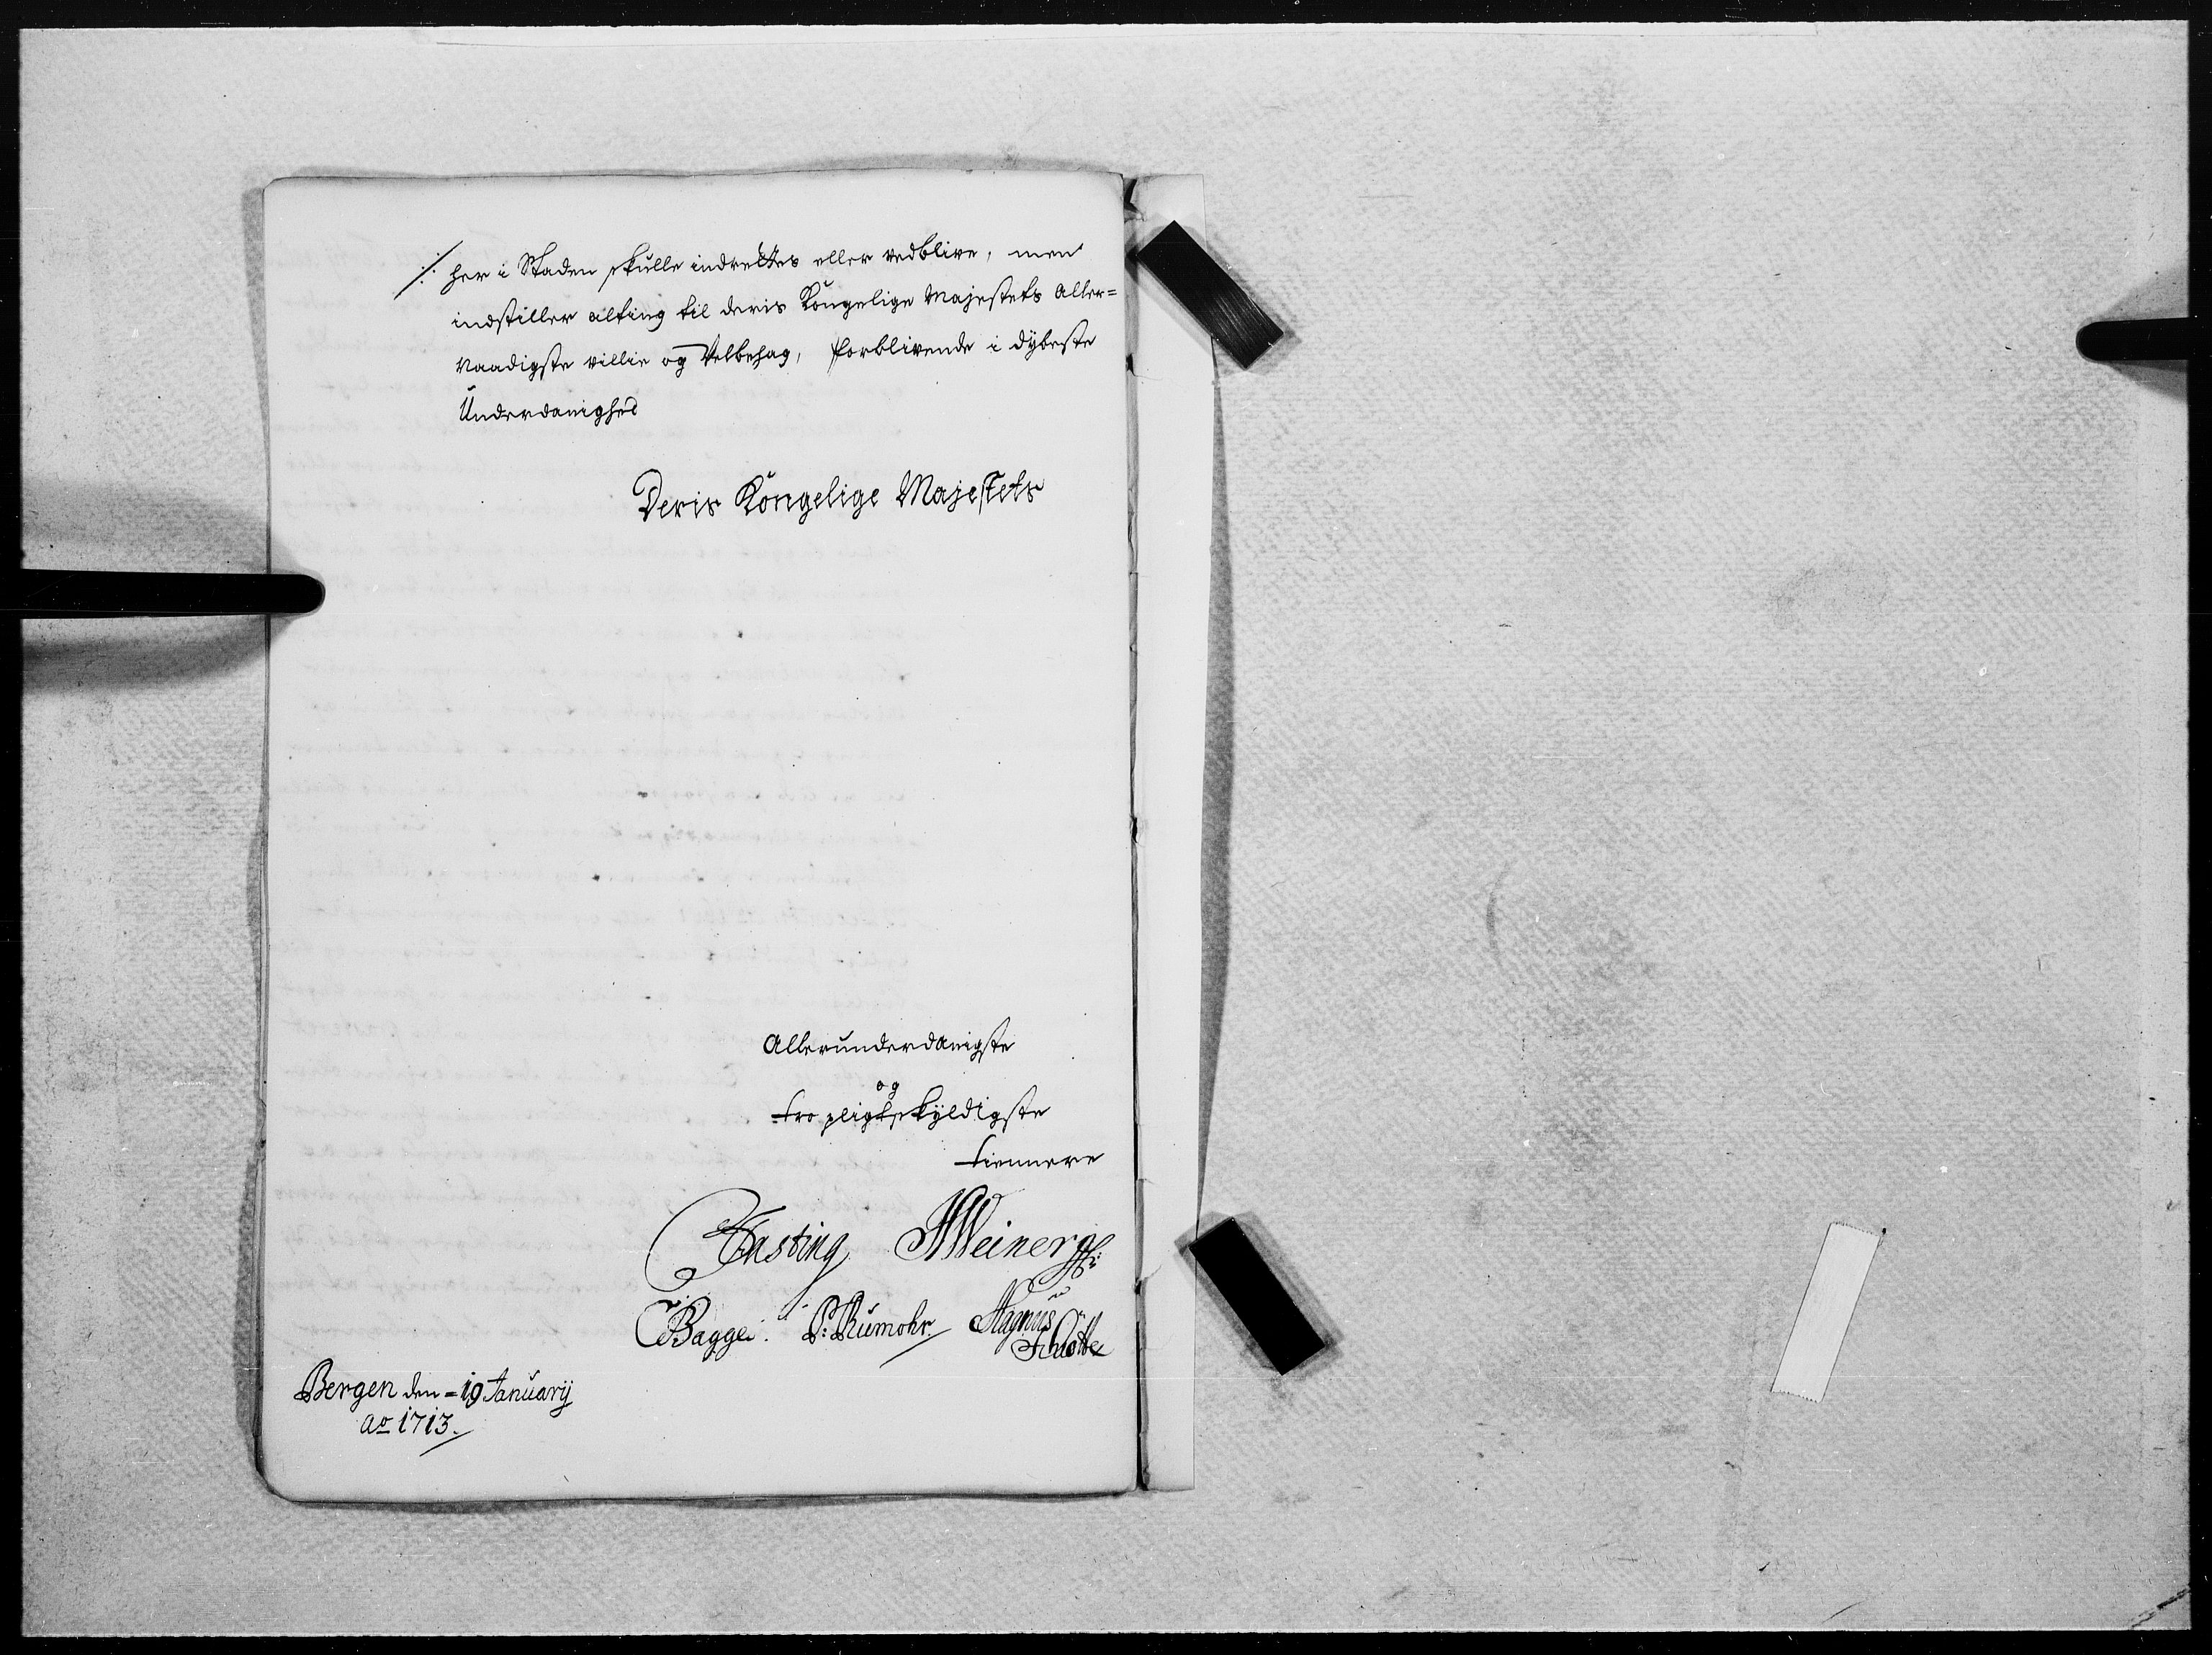 ·/· her i Staden skulle indrettes eller vedblive, men
indstiller alting til deris Kongelige Majestets Aller=
naadigste villie og Velbehag, forblivende i dybeste
Underdanighed
Deris Kongelige Majestets
Allerunderdanigste
og
tro pligtskyldigste
tiennere
Fasting JWeinerg
CBagge. P: Rumohr. Magnus
Schiøtte
Bergen den = 19 January
Ao 1713.